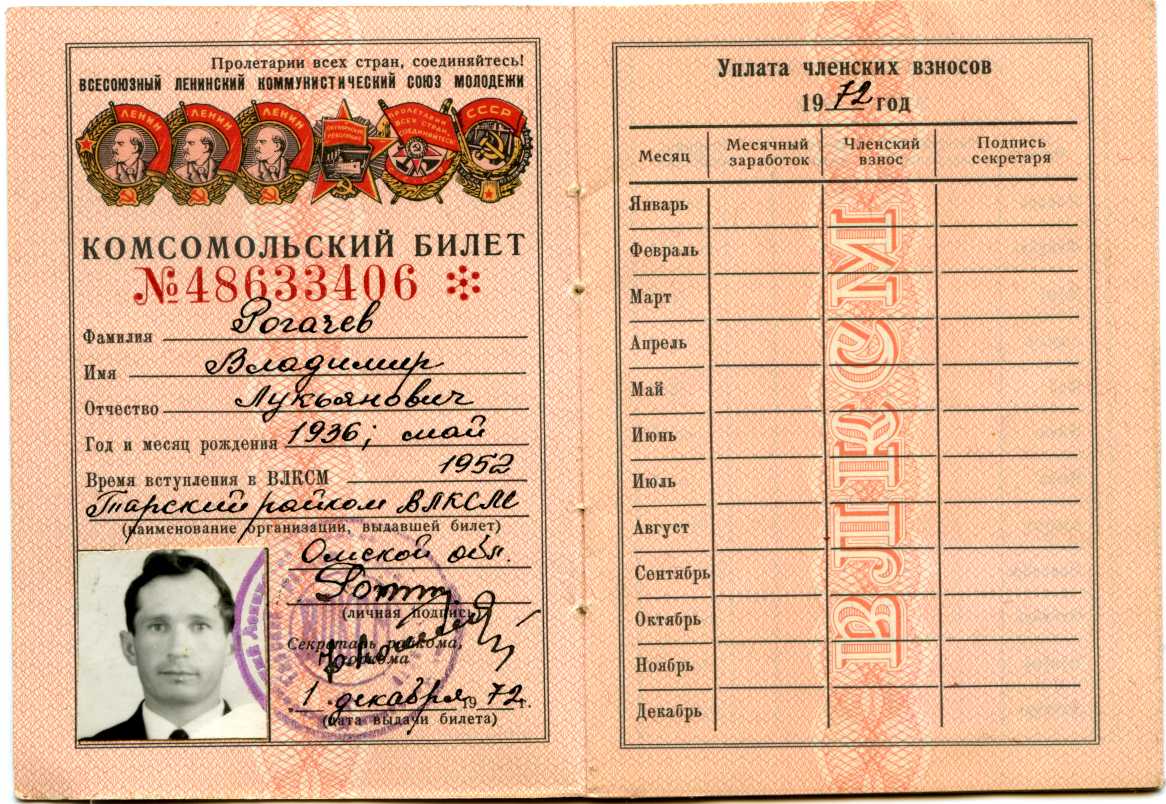 Пролетарии всех стран, соединяйтесь!
ВСЕСОЮЗНЫЙ ЛЕНИНСКИЙ КОММУНИСТИЧЕСКИЙ СОЮЗ МОЛОДЕЖИ
ЛЕНИН ЛЕНИН ЛЕНИН ОКТЯБРЬСКАЯ РЕВОЛЮЦИЯ ПРОЛЕТАРИИ ВСЕХ СТРАН, СОЕДИНЯЙТЕСЬ! СССР
КОМСОМОЛЬСКИЙ БИЛЕТ
№48633406
Фамилия Рогачев
Имя Владимир
Отчество Лукьянович
Год и месяц рождения 1936; май
Время вступления в ВЛКСМ 1952
Тарский райком ВЛКСМ
(наименование организации, выдавшей билет)
Омской обл.
(личная подпись)
Секретарь райкома,
горкома
1 декабря 1972 г.
(дата выдачи билета)
Уплата членских взносов
1972 год
Месяц Месячный заработок Членский взнос Подпись секретаря
Январь
Февраль
Март
Апрель
Май
Июнь
Июль
Август
Сентябрь
Октябрь
Ноябрь
Декабрь
ВЛКСМ